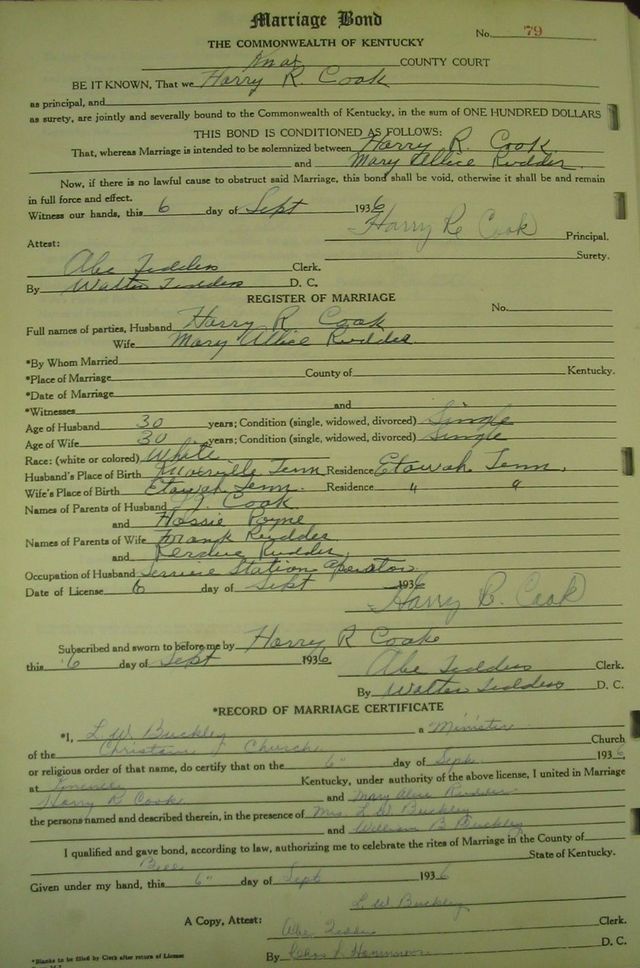 Marriage Bond
No. 79
THE COMMONWEALTH OF KENTUCKY
Knox COUNTY COURT
BE IT KNOWN, That we Harry R. Cook
as principal, and
as surety, are jointly and severally bound to the Commonwealth of Kentucky, in the sum of ONE HUNDRED DOLLARS
THIS BOND IS CONDITIONED AS FOLLOWS:
That, whereas Marriage is intended to be solemnized between Harry R. Cook
and Mary Allice Rudder.
Now, if there is no lawful cause to obstruct said Marriage, this bond shall be void, otherwise it shall be and remain
in full force and effect.
Witness our hands, this 6 day of Sept 1936
Harry R Cook Principal.
Attest:
Surety.
Abe Tedders Clerk.
By Walter Tedders D. C.
REGISTER OF MARRIAGE
No.
Full names of parties, Husband Harry R. Cook
Wife Mary Allice Rudder
*By Whom Married
*Place of Marriage County of Kentucky.
*Date of Marriage
*Witnesses and
Age of Husband 30 years; Condition (single, widowed, divorced) Single
Age of Wife 30 years; Condition (single, widowed, divorced) Single
Race: (white or colored) White
Husband's Place of Birth Tenn Residence Etowah Tenn.
Wife's Place of Birth Etowah Tenn. Residence " "
Names of Parents of Husband Cook
and Hossie Payne
Names of Parents of Wife Frank Rudder
and Rudder
Occupation of Husband Service Station Operator
Date of License 6 day of Sept 1936
Harry R. Cook
Subscribed and sworn to before me by Harry R Cooke
this 6 day of Sept 1936
Abe Tedders Clerk.
By Walter Tedders D. C.
*RECORD OF MARRIAGE CERTIFICATE
*I, L. W. Buckley a Minister
of the Christain Church Church
or religious order of that name, do certify that on the 6" day of Sept. 1936,
at Kentucky, under authority of the above license, I united in Marriage
Harry R Cook and Mary Alice Rudder
the persons named and described therein, in the presence of Mrs. L W Buckley
and William B Buckley
I qualified and gave bond, according to law, authorizing me to celebrate the rites of Marriage in the County of
Bell State of Kentucky.
Given under my hand, this 6" day of Sept 1936
L. W Buckley
A Copy, Attest: Abe Tedders Clerk.
By D. C.
*Blanks to be filled by Clerk after return of License